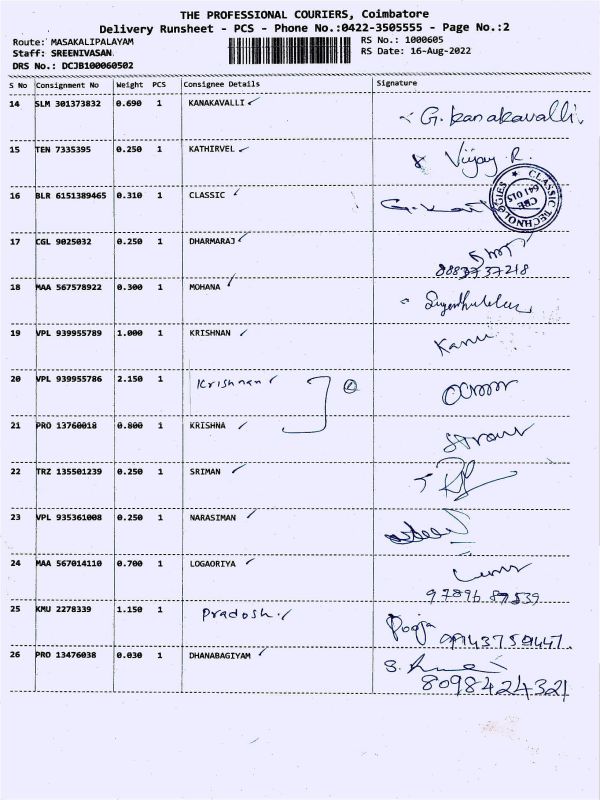 THE PROFESSIONAL COURIERS, Coimbatore
Delivery Runsheet - PCS - Phone No.:0422-3505555 - Page No.:2
Route: MASAKALIPALAYAM
Staff: SREENIVASAN
DRS No.: DCJB100060502
RS No.: 1000605
RS Date: 16-Aug-2022
S No Consignment No Weight PCS Consignee Details Signature
14 SLM 301373832 0.690 1 KANAKAVALLI ✓ G. kanakavalli
15 TEN 7335395 0.250 1 KATHIRVEL ✓ Vijay R.
16 BLR 6151389465 0.310 1 CLASSIC ✓
CLASSIC TECHNOLOGIES
CBE
641 015
17 CGL 9025032 0.250 1 DHARMARAJ ✓
8883737218
18 MAA 567578922 0.300 1 MOHANA ✓
19 VPL 939955789 1.000 1 KRISHNAN ✓
20 VPL 939955786 2.150 1 Krishnan ✓
21 PRO 13760018 0.800 1 KRISHNA ✓
22 TRZ 135501239 0.250 1 SRIMAN ✓
23 VPL 935361008 0.250 1 NARASIMAN ✓
24 MAA 567014110 0.700 1 LOGAORIYA ✓
97896 87539
25 KMU 2278339 1.150 1 Pradosh ✓ Pooja
26 PRO 13476038 0.030 1 DHANABAGIYAM ✓
8098424321